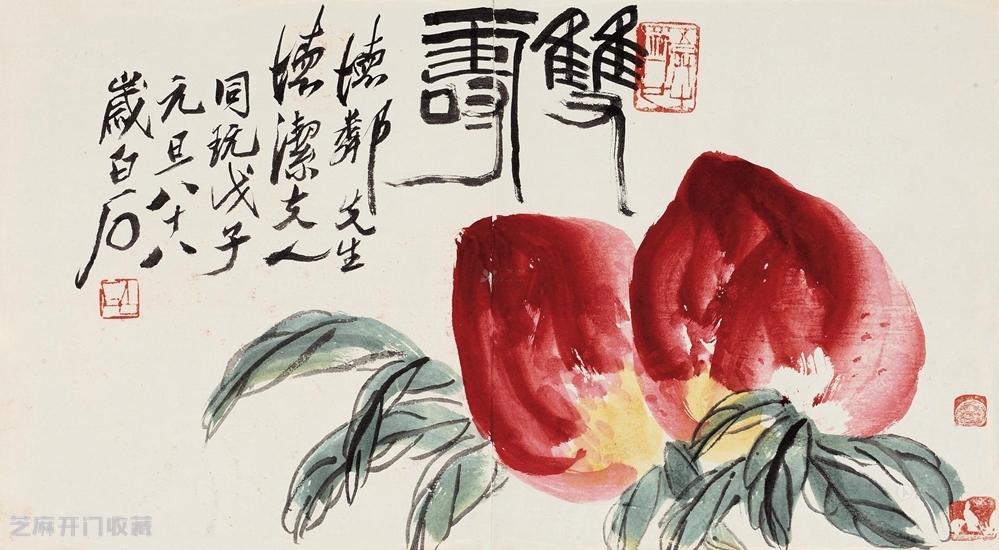 雙壽
德鄰先生
德潔夫人
同玩戊子
元旦八十八
歲白石
芝麻开门收藏